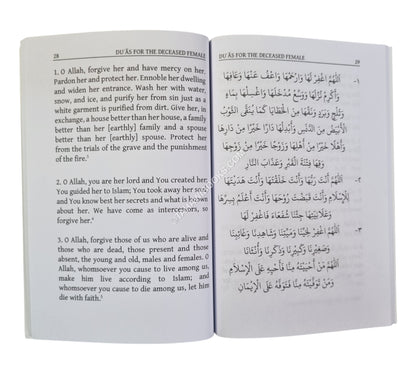 28 DU'ĀS FOR THE DECEASED FEMALE
1. O Allah, forgive her and have mercy on her.
Pardon her and protect her. Ennoble her dwelling
and widen her entrance. Wash her with water,
snow, and ice, and purify her from sin just as a
white garment is purified from dirt. Give her, in
exchange, a house better than her house, a family
better than her [earthly] family and a spouse
better than her [earthly] spouse. Protect her
from the trials of the grave and the punishment
of the fire.⁵
2. O Allah, you are her lord and You created her.
You guided her to Islam; You took away her soul
and You know best her secrets and what is known
about her. We have come as intercessors, so
forgive her.⁶
3. O Allah, forgive those of us who are alive and
those who are dead, those present and those
absent, the young and old, males and females. O
Allah, whomsoever you cause to live among us,
make him live according to Islam; and
whomsoever you cause to die among us, let him
die with faith.⁷
DU'ĀS FOR THE DECEASED FEMALE 29
١- اَللّٰهُمَّ اغْفِرْ لَهَا وَارْحَمْهَا وَاعْفُ عَنْهَا وَعَافِهَا
وَأَكْرِمْ نُزُلَهَا وَوَسِّعْ مُدْخَلَهَا وَاغْسِلْهَا بِمَاءٍ
وَثَلْجٍ وَبَرَدٍ وَنَقِّهَا مِنَ الْخَطَايَا كَمَا يُنَقَّى الثَّوْبُ
الْأَبْيَضُ مِنَ الدَّنَسِ وَأَبْدِلْهَا دَارًا خَيْرًا مِنْ دَارِهَا
وَأَهْلًا خَيْرًا مِنْ أَهْلِهَا وَزَوْجًا خَيْرًا مِنْ زَوْجِهَا
وَقِهَا فِتْنَةَ الْقَبْرِ وَعَذَابَ النَّارِ
٢- اَللّٰهُمَّ أَنْتَ رَبُّهَا وَأَنْتَ خَلَقْتَهَا وَأَنْتَ هَدَيْتَهَا
لِلْإِسْلَامِ وَأَنْتَ قَبَضْتَ رُوْحَهَا وَأَنْتَ أَعْلَمُ بِسِرِّهَا
وَعَلَانِيَتِهَا جِئْنَا شُفَعَاءَ فَاغْفِرْ لَهَا
٣- اَللّٰهُمَّ اغْفِرْ لِحَيِّنَا وَمَيِّتِنَا وَشَاهِدِنَا وَغَائِبِنَا
وَصَغِيْرِنَا وَكَبِيْرِنَا وَذَكَرِنَا وَأُنْثَانَا
اَللّٰهُمَّ مَنْ أَحْيَيْتَهُ مِنَّا فَأَحْيِهِ عَلَى الْإِسْلَامِ
وَمَنْ تَوَفَّيْتَهُ مِنَّا فَتَوَفَّهُ عَلَى الْإِيْمَانِ